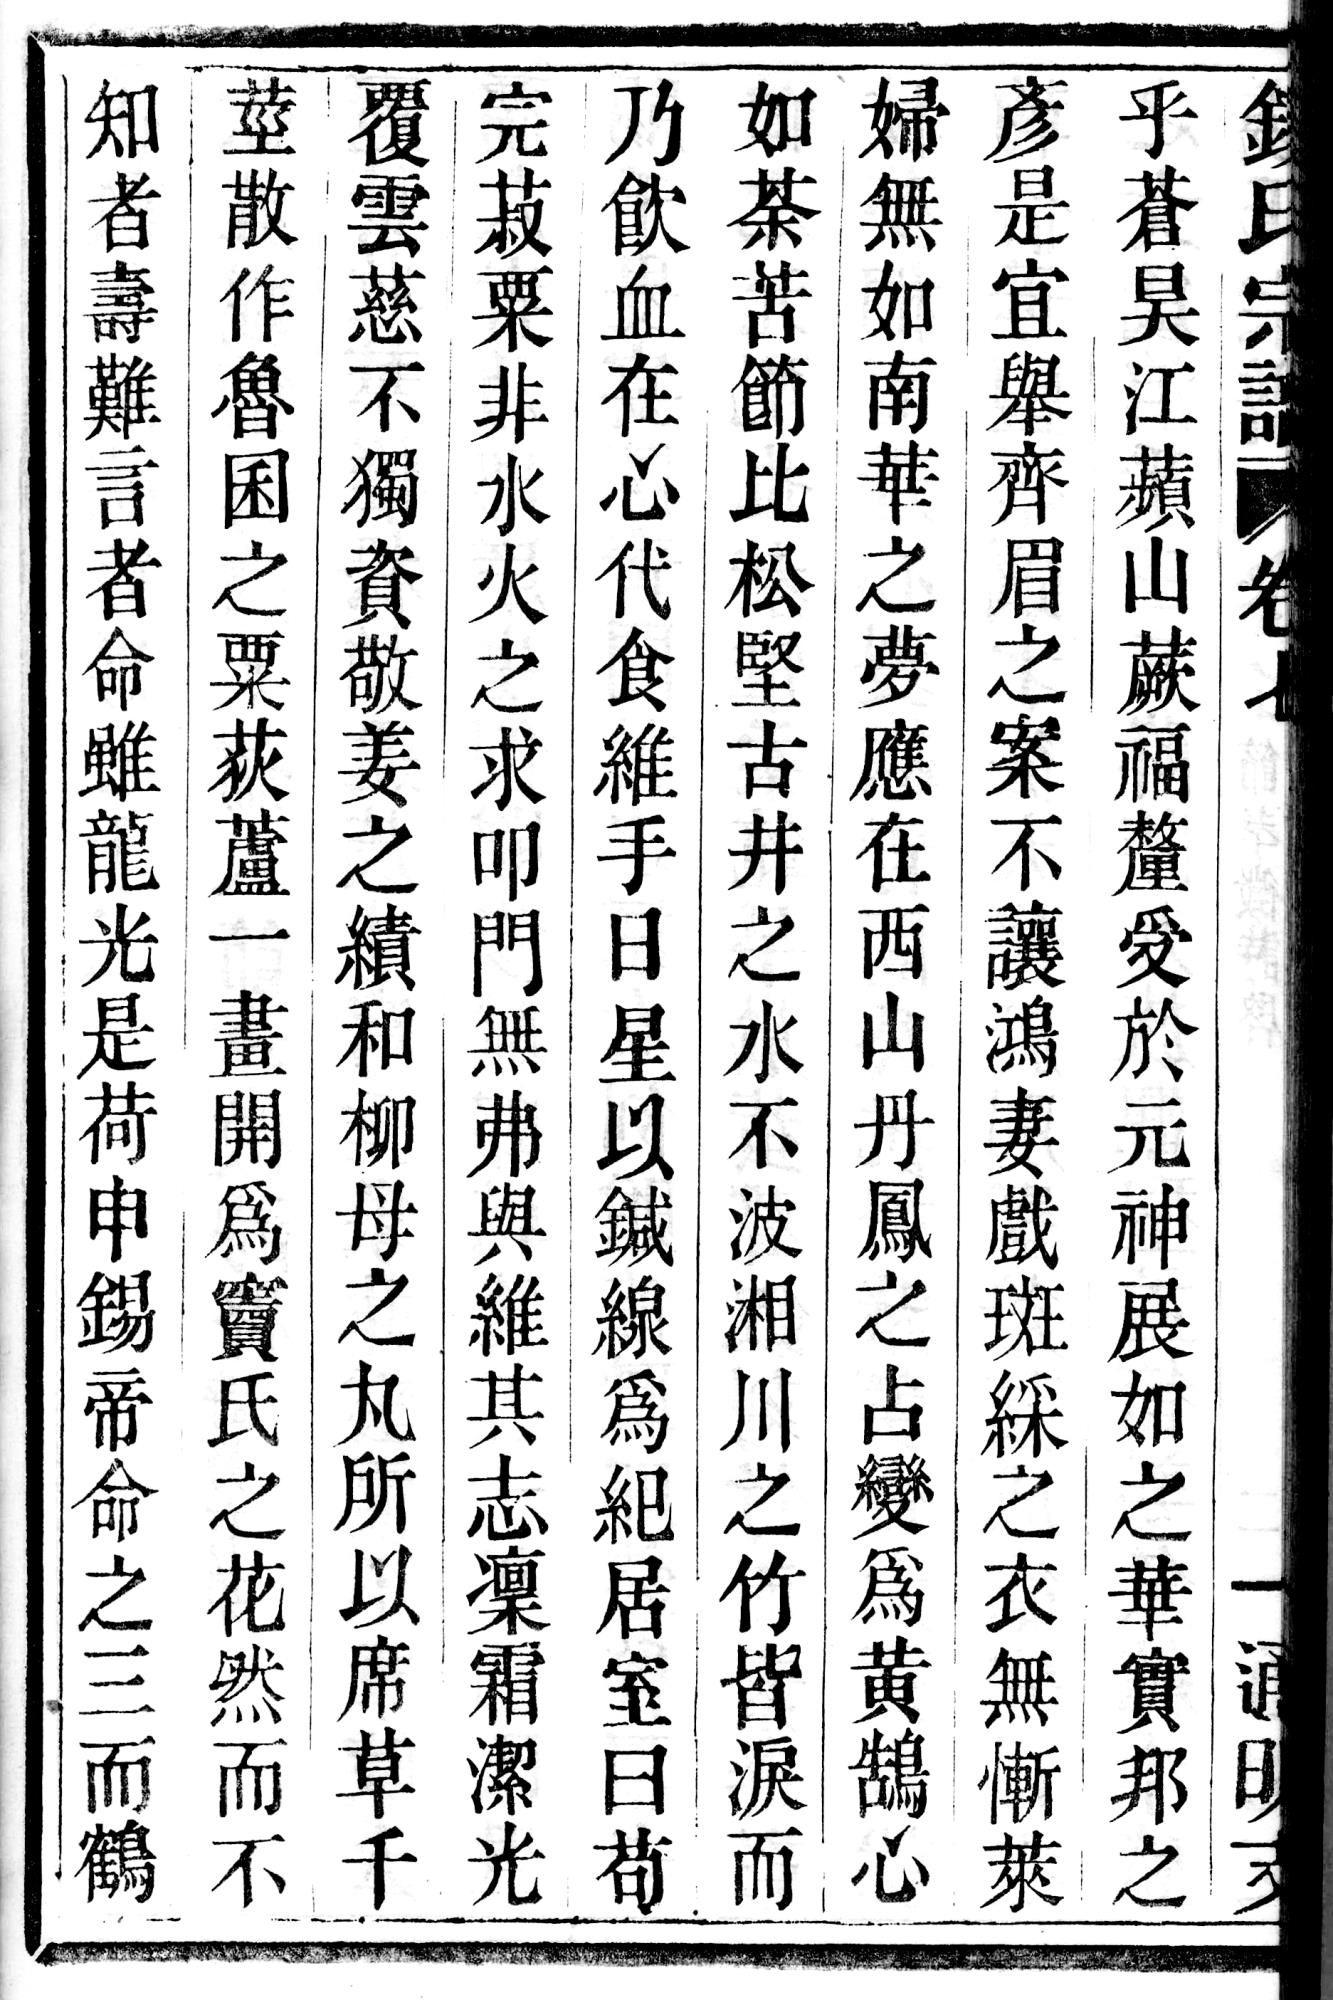 氏宗譜 卷七 一 通明支
乎蒼昊江蘋山蕨福釐受於元神展如之華實邦之
彥是宜舉齊眉之案不讓鴻妻戲斑綵之衣無慚萊
婦無如南華之夢應在西山丹鳳之占變爲黃鵠心
如荼苦節比松堅古井之水不波湘川之竹皆淚而
乃飲血在心代食維手日星以鍼線爲紀居室曰苟
完菽粟非水火之求叩門無弗與維其志凜霜潔光
覆雲慈不獨資敬姜之績和柳母之丸所以席草千
莖散作魯囷之粟荻蘆一畫開爲竇氏之花然而不
知者壽難言者命雖龍光是荷申錫帝命之三而鶴